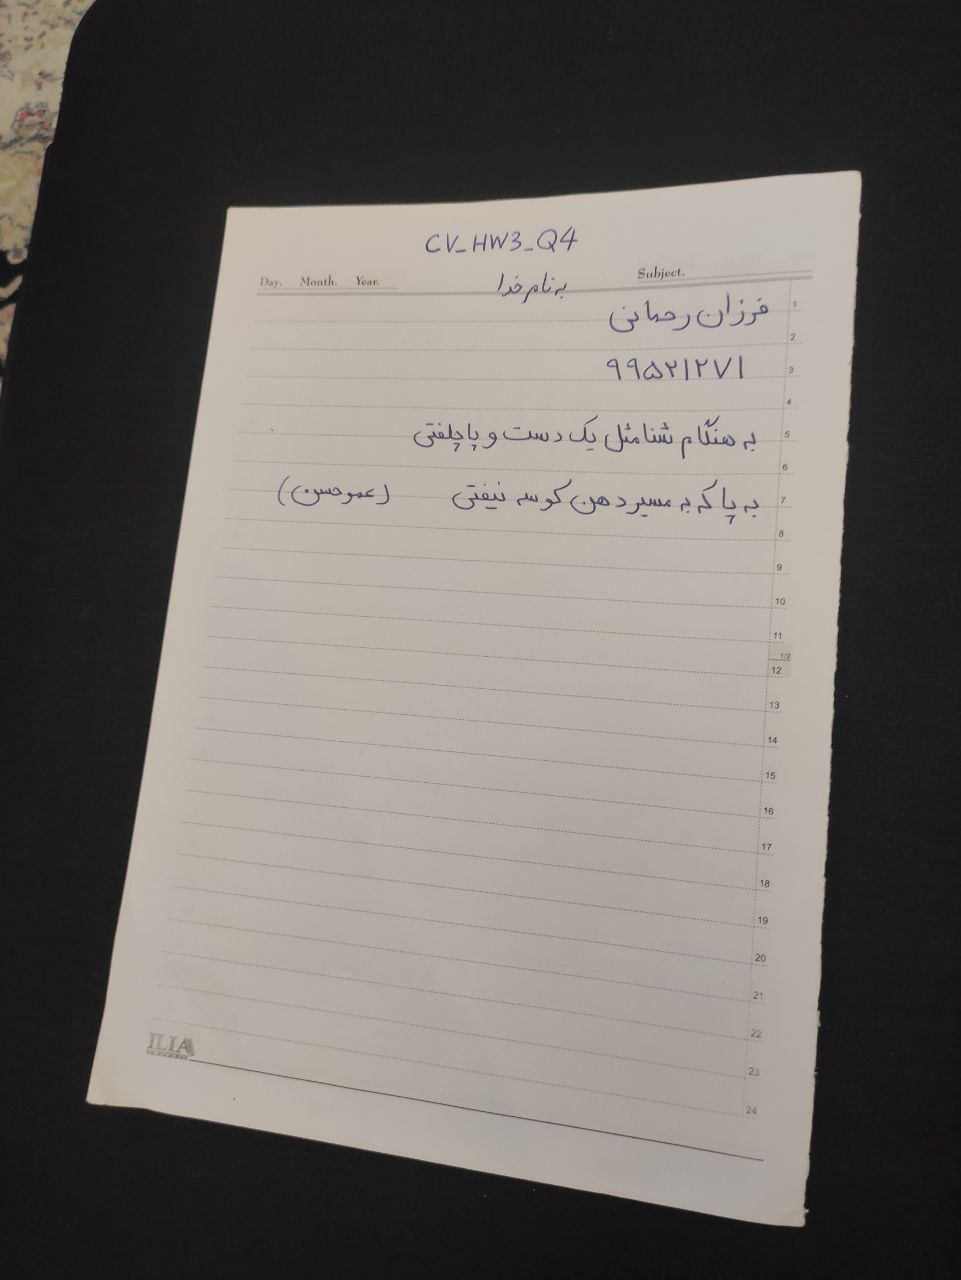 CV_HW3_Q4
Day. Month. Year.
به نام خدا
Subject.
فرزان رحمانی
۹۹۵۲۱۲۷۱
به هنگام شنا مثل یک دست و پا چلفتی
به پا که به مسیر دهن کوسه نیفتی (عمو حسن)
1
2
3
4
5
6
7
8
9
10
11
1/2
12
13
14
15
16
17
18
19
20
21
22
23
24
ILIA